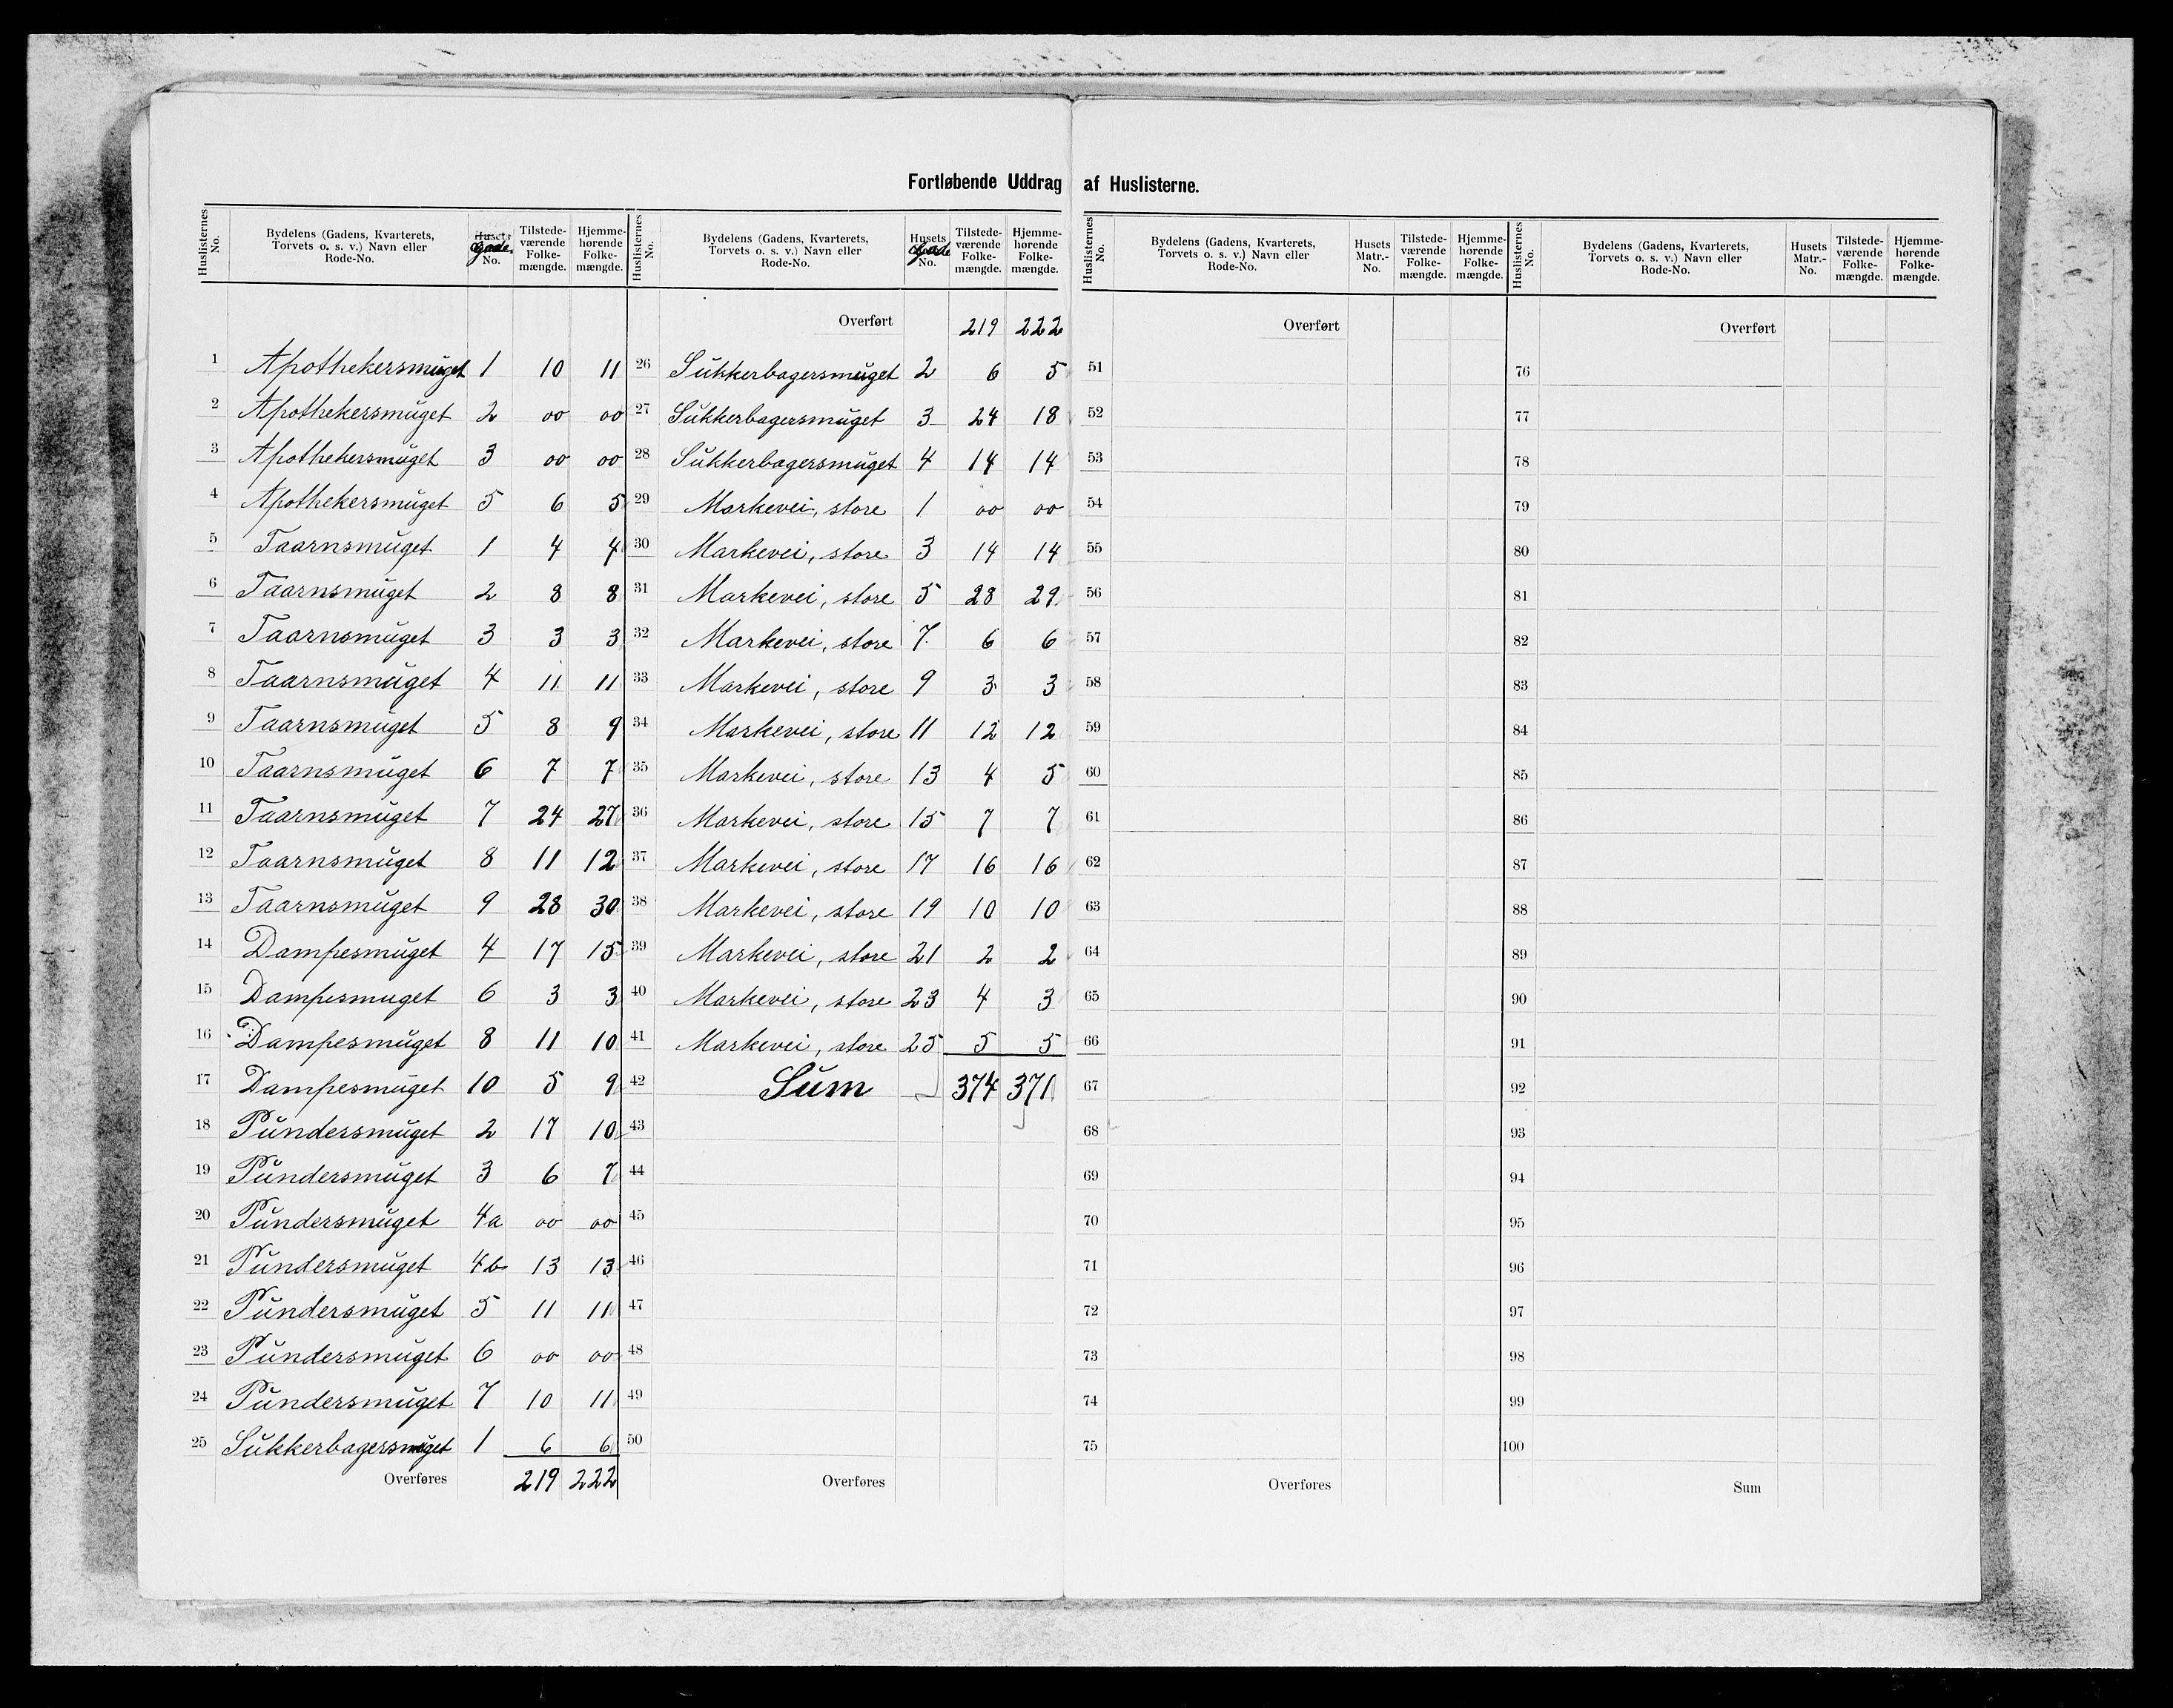 Fortløbende Uddrag af Huslisterne.
Huslisternes No. Bydelens (Gadens, Kvarterets, Torvets o. s. v.) Navn eller Rode-No. Husets Gade No. Tilstede-værende Folke-mængde. Hjemme-hørende Folke-mængde.
1 Apothekersmuget 1 10 11
2 Apothekersmuget 2 00 00
3 Apothekersmuget 3 00 00
4 Apothekersmuget 5 6 5
5 Taarnsmuget 1 4 4
6 Taarnsmuget 2 8 8
7 Taarnsmuget 3 3 3
8 Taarnsmuget 4 11 11
9 Taarnsmuget 5 8 9
10 Taarnsmuget 6 7 7
11 Taarnsmuget 7 24 27
12 Taarnsmuget 8 11 12
13 Taarnsmuget 9 28 30
14 Dampesmuget 4 17 15
15 Dampesmuget 6 3 3
16 Dampesmuget 8 11 10
17 Dampesmuget 10 5 9
18 Pundersmuget 2 17 10
19 Pundersmuget 3 6 7
20 Pundersmuget 4a 00 00
21 Pundersmuget 4b 13 13
22 Pundersmuget 5 11 11
23 Pundersmuget 6 00 00
24 Pundersmuget 7 10 11
25 Sukkerbagersmuget 1 6 6
Overføres 219 222
Huslisternes No. Bydelens (Gadens, Kvarterets, Torvets o. s. v.) Navn eller Rode-No. Husets Gade No. Tilstede-værende Folke-mængde. Hjemme-hørende Folke-mængde.
Overført 219 222
26 Sukkerbagersmuget 2 6 5
27 Sukkerbagersmuget 3 24 18
28 Sukkerbagersmuget 4 14 14
29 Markevei, store 1 00 00
30 Markevei, store 3 14 14
31 Markevei, store 5 28 29
32 Markevei, store 7 6 6
33 Markevei, store 9 3 3
34 Markevei, store 11 12 12
35 Markevei, store 13 4 5
36 Markevei, store 15 7 7
37 Markevei, store 17 16 16
38 Markevei, store 19 10 10
39 Markevei, store 21 2 2
40 Markevei, store 23 4 3
41 Markevei, store 25 5 5
42 Sum 374 371
43
44
45
46
47
48
49
50
Overføres
Huslisternes No. Bydelens (Gadens, Kvarterets, Torvets o. s. v.) Navn eller Rode-No. Husets Matr.-No. Tilstede-værende Folke-mængde. Hjemme-hørende Folke-mængde.
Overført
51
52
53
54
55
56
57
58
59
60
61
62
63
64
65
66
67
68
69
70
71
72
73
74
75
Overføres
Huslisternes No. Bydelens (Gadens, Kvarterets, Torvets o. s. v.) Navn eller Rode-No. Husets Matr.-No. Tilstede-værende Folke-mængde. Hjemme-hørende Folke-mængde.
Overført
76
77
78
79
80
81
82
83
84
85
86
87
88
89
90
91
92
93
94
95
96
97
98
99
100
Sum